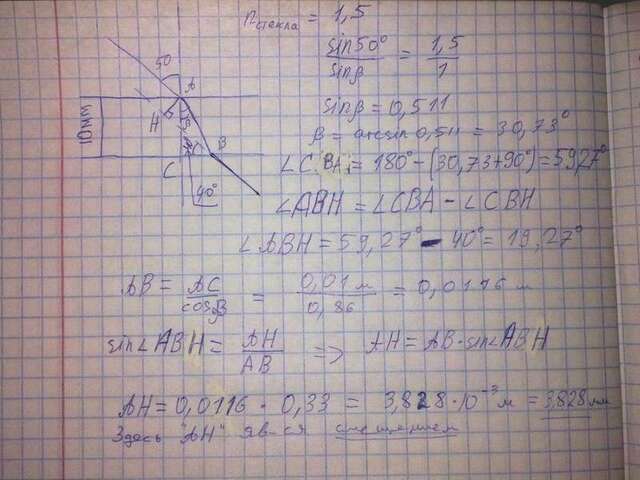 n стекла = 1,5
sin50° / sinβ = 1,5 / 1
sinβ = 0,511
β = arcsin 0,511 = 30,73°
∠CBA = 180° - (30,73+90°) = 59,27°
∠ABH = ∠CBA - ∠CBH
∠ABH = 59,27° - 40° = 19,27°
AB = AC / cosβ = 0,01 м / 0,86 = 0,0116 м
sin∠ABH = AH / AB => AH = AB·sin∠ABH
AH = 0,0116 · 0,33 = 3,828·10⁻³ м = 3,828 мм
Здесь "AH" яв-ся смещением
50
A
H
10мм
B
C
40°